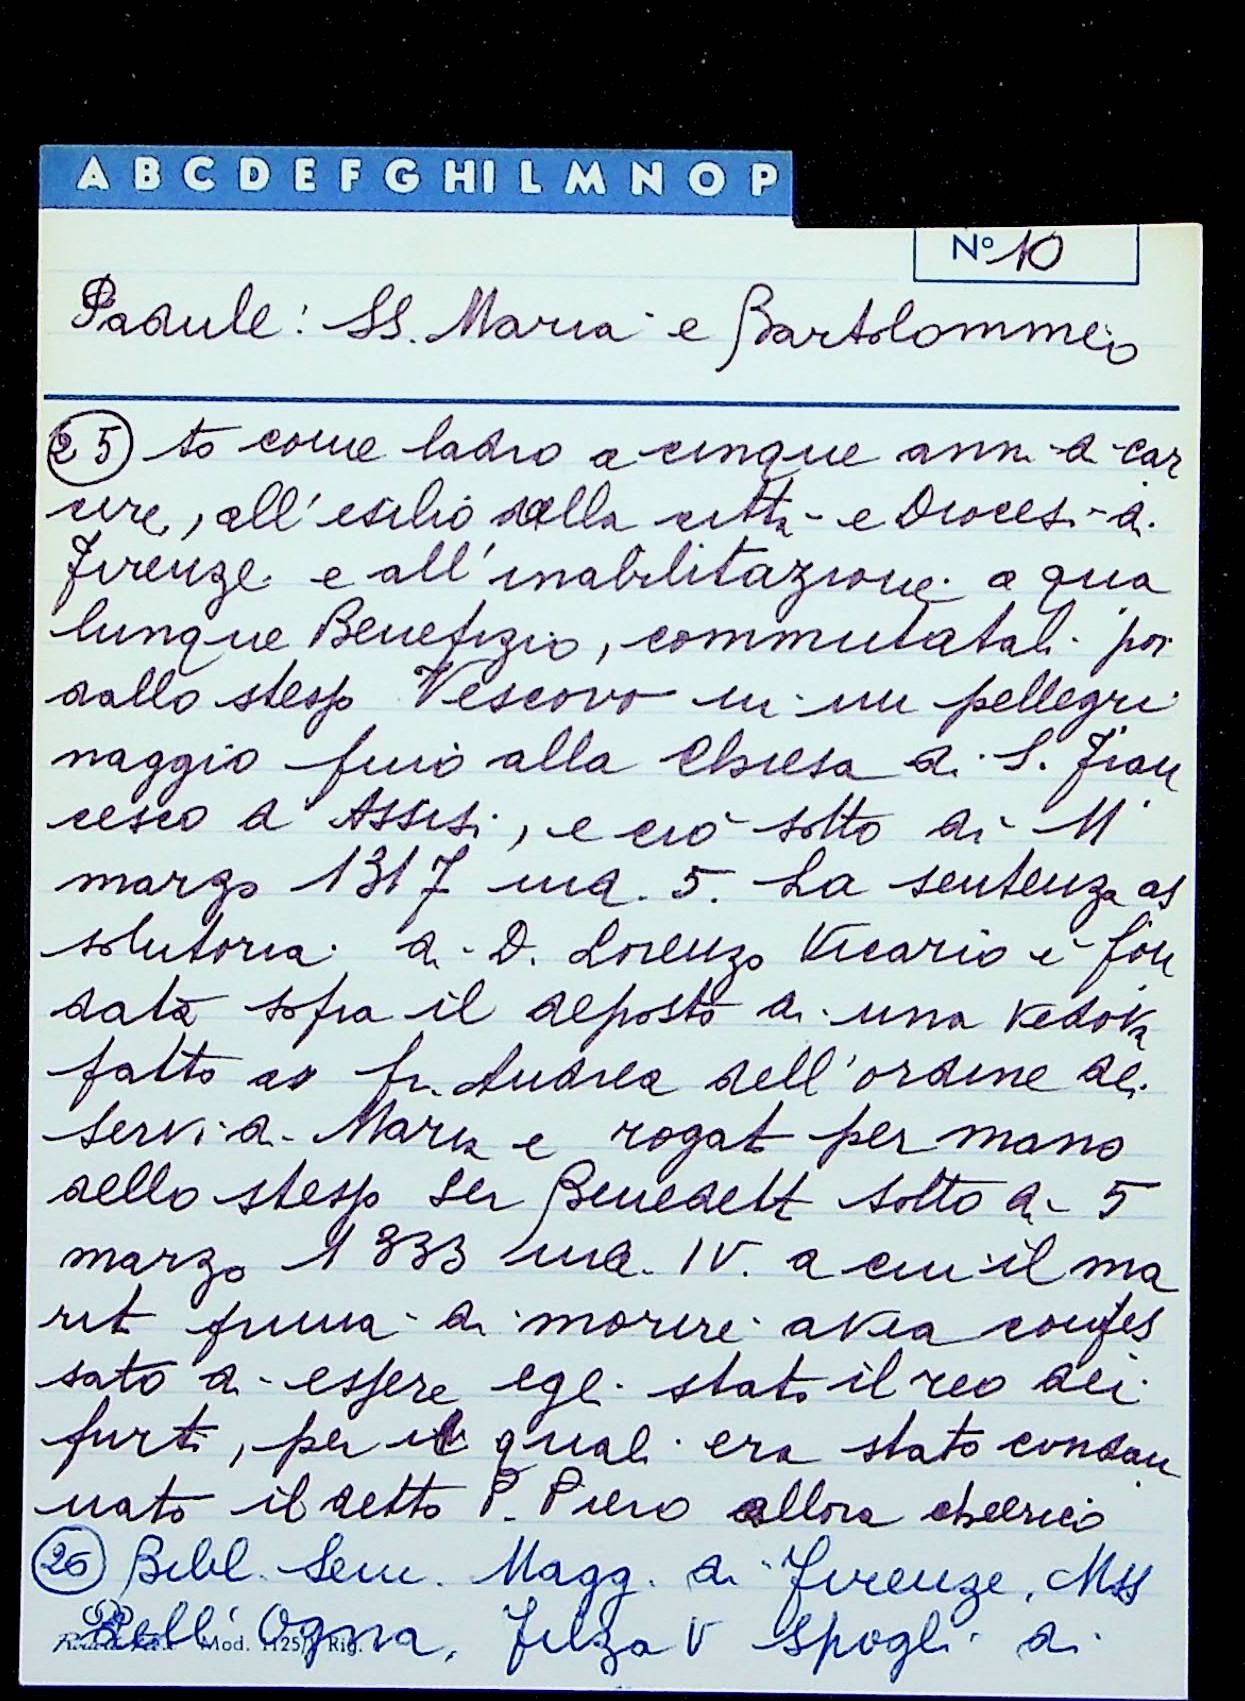 A B C D E F G HI L M N O P
N° 10
Padule: SS. Maria e Bartolommeo
25 to come ladro a cinque anni di car
cere, all'esilio della città e Diocesi di
Firenze e all'inabilitazione a qua
lunque Benefizio, commutatali poi
dallo stesso Vescovo in un pellegri
naggio fino alla Chiesa di S. Fran
cesco d'Assisi, e ciò sotto dì 11
marzo 1317 ind. 5. La sentenza as
solutoria di D. Lorenzo Vicario è fon
data sopra il deposto di una vedova
fatto ad fr. Andrea dell'ordine dei
Servi di Maria e rogato per mano
dello stesso Ser Benedetto sotto dì 5
marzo 1333 ind. IV. a cui il ma
rito prima di morire avea confes
sato di essere egli stato il reo dei
furti, per i quali era stato condan
nato il detto P. Piero allora chierico
26 Bibl. Sem. Magg. di Firenze, Mss
Dell'Ogna, Filza V Spogli di
Mod. 1125/ Rig.